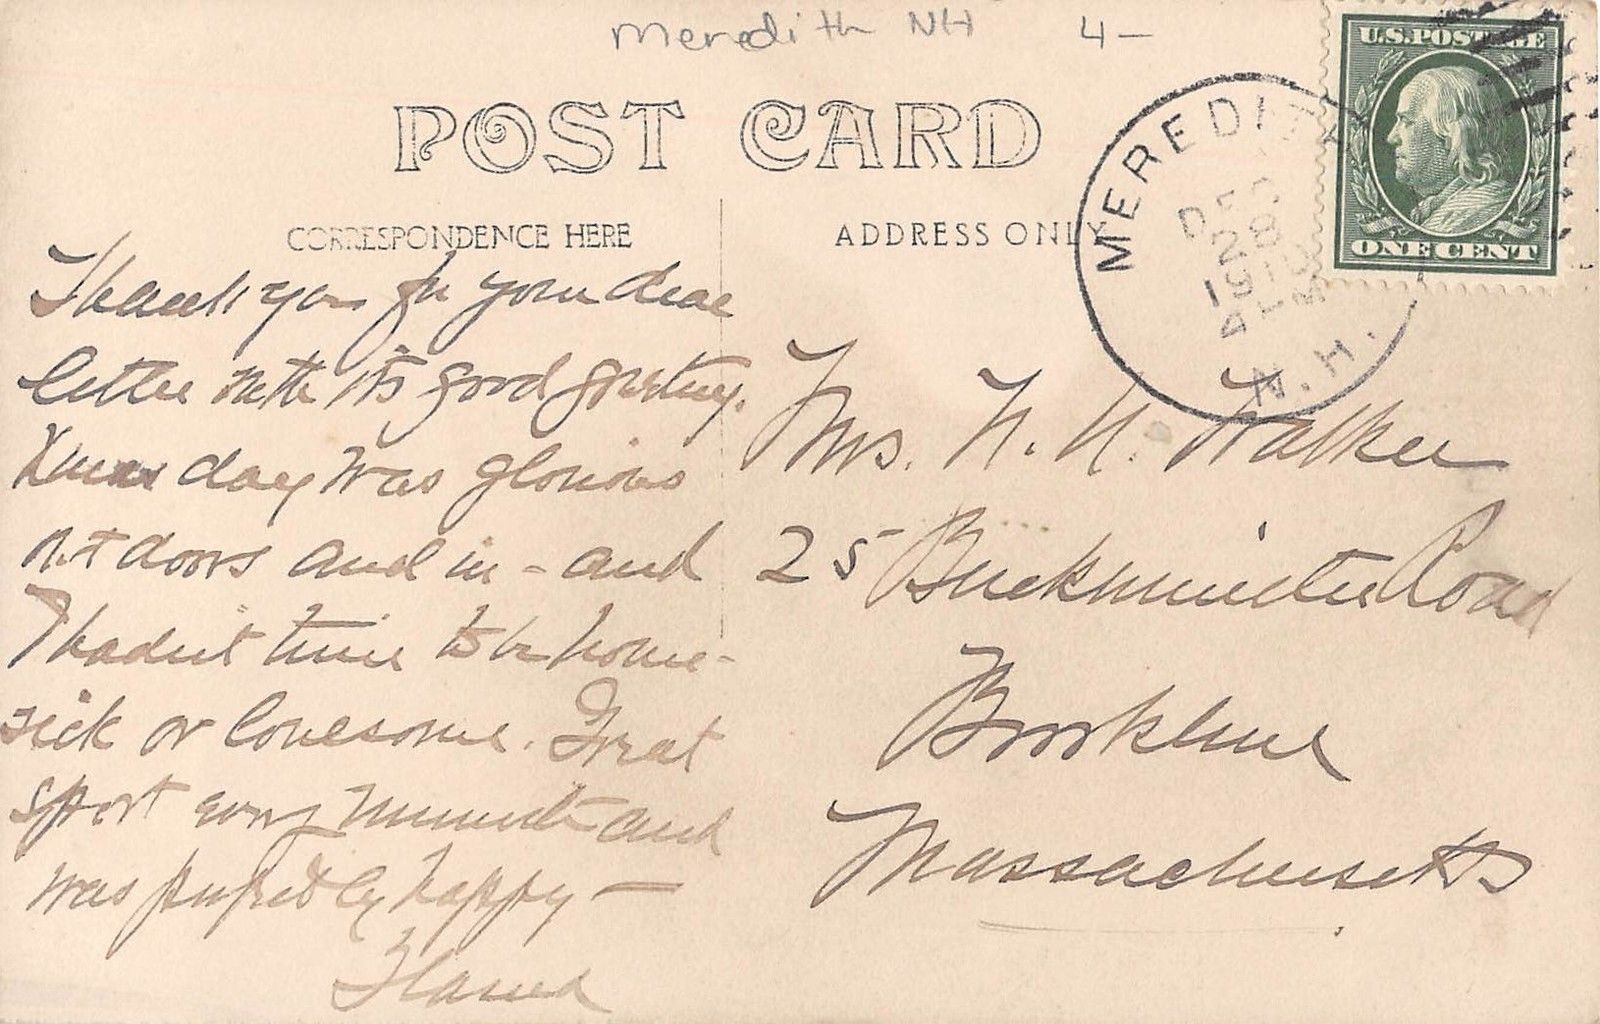 Meredith NH 4-
POST CARD
U.S. POSTAGE
ONE CENT
MEREDITH
N.H.
DEC
28
CORRESPONDENCE HERE
ADDRESS ONLY
Thank you for your dear
letter with its good greeting.
Xmas day was glorious
out doors and in - and
I hadn't time to be home-
sick or lonesome. Great
sport every minute and
was perfectly happy -
Mrs. N. U. Walker
25 Buckminster Road
Brookline
Massachusetts